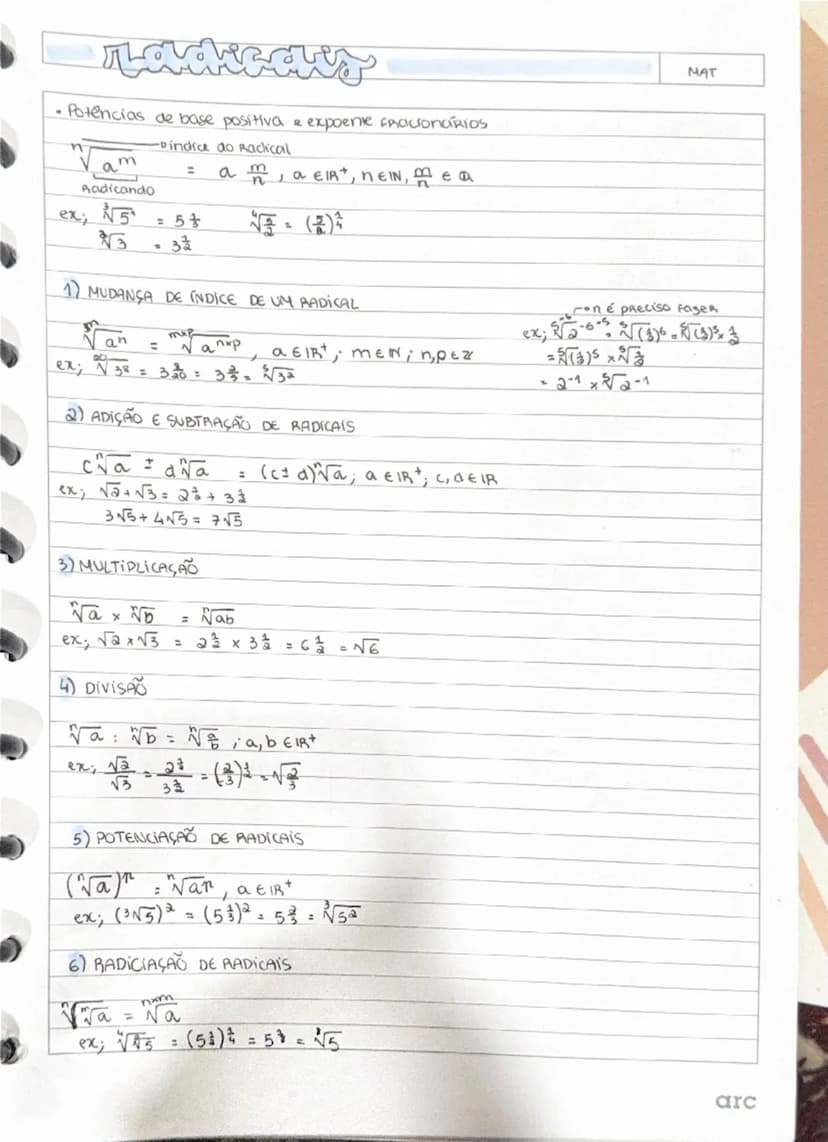 radicais
MAT
• Potências de base positiva e expoente fracionários
ⁿ√aᵐ = a m/n, a ∈ IR⁺, n ∈ IN, m/n ∈ Q
índice do Radical
Radicando
ex; ³√5¹ = 5 1/3 ⁴√5/2 = (5/2)1/4
²√3 = 3 1/2
1) MUDANÇA DE ÍNDICE DE UM RADICAL
ᵐ√aⁿ = ᵐˣᵖ√aⁿˣᵖ, a ∈ IR⁺; m ∈ IN; n,p ∈ Z
ex; ²⁰√3⁸ = 3 8/20 = 3 2/5 = ⁵√3²
ñ é preciso fazer
ex; ⁵√2⁻⁶ = ⁵√(1/2)⁶ = ⁵√(1/2)⁵ × 1/2
= ⁵√(1/2)⁵ × ⁵√1/2
= 2⁻¹ × ⁵√2⁻¹
2) ADIÇÃO E SUBTRAÇÃO DE RADICAIS
cⁿ√a ± dⁿ√a = (c ± d)ⁿ√a; a ∈ IR⁺; c, d ∈ IR
ex; √2 + √3 = 2 1/2 + 3 1/2
3√5 + 4√5 = 7√5
3) MULTIPLICAÇÃO
ⁿ√a × ⁿ√b = ⁿ√ab
ex; √2 × √3 = 2 1/2 × 3 1/2 = 6 1/2 = √6
4) DIVISÃO
ⁿ√a : ⁿ√b = ⁿ√a/b ; a, b ∈ IR⁺
ex; √2/√3 = 2 1/2 / 3 1/2 = (2/3)1/2 = √2/3
5) POTENCIAÇÃO DE RADICAIS
(ⁿ√a)ⁿ = ⁿ√aⁿ, a ∈ IR⁺
ex; (³√5)² = (5 1/3)² = 5 2/3 = ³√5²
6) RADICIAÇÃO DE RADICAIS
ⁿ√ᵐ√a = ⁿˣᵐ√a
ex; ⁴√√5 = (5 1/2)1/4 = 5 1/8 = ⁸√5
arc